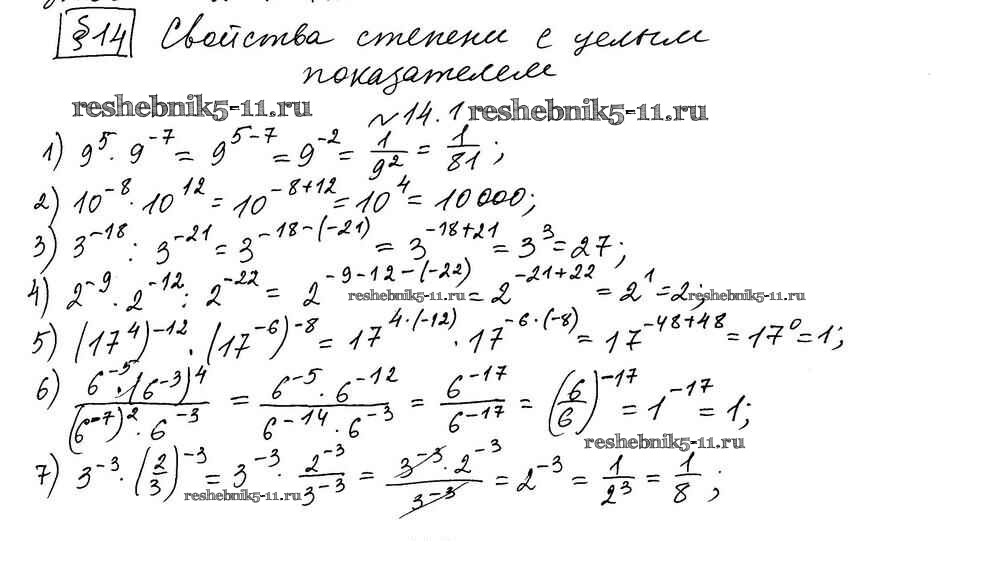 §14 Свойства степени с целым
показателем
reshebnik5-11.ru №14.1 reshebnik5-11.ru
1) 9^5 · 9^-7 = 9^5-7 = 9^-2 = 1/9^2 = 1/81;
2) 10^-8 · 10^12 = 10^-8+12 = 10^4 = 10 000;
3) 3^-18 : 3^-21 = 3^-18-(-21) = 3^-18+21 = 3^3 = 27;
4) 2^-9 · 2^-12 : 2^-22 = 2^-9-12-(-22) = 2^-21+22 = 2^1 = 2;
reshebnik5-11.ru reshebnik5-11.ru
5) (17^4)^-12 · (17^-6)^-8 = 17^4·(-12) · 17^-6·(-8) = 17^-48+48 = 17^0 = 1;
6) 6^-5 · (6^-3)^4 / (6^-7)^2 · 6^-3 = 6^-5 · 6^-12 / 6^-14 · 6^-3 = 6^-17 / 6^-17 = (6/6)^-17 = 1^-17 = 1;
reshebnik5-11.ru
7) 3^-3 · (2/3)^-3 = 3^-3 · 2^-3 / 3^-3 = 3^-3 · 2^-3 / 3^-3 = 2^-3 = 1/2^3 = 1/8;
reshebnik5-11.ru